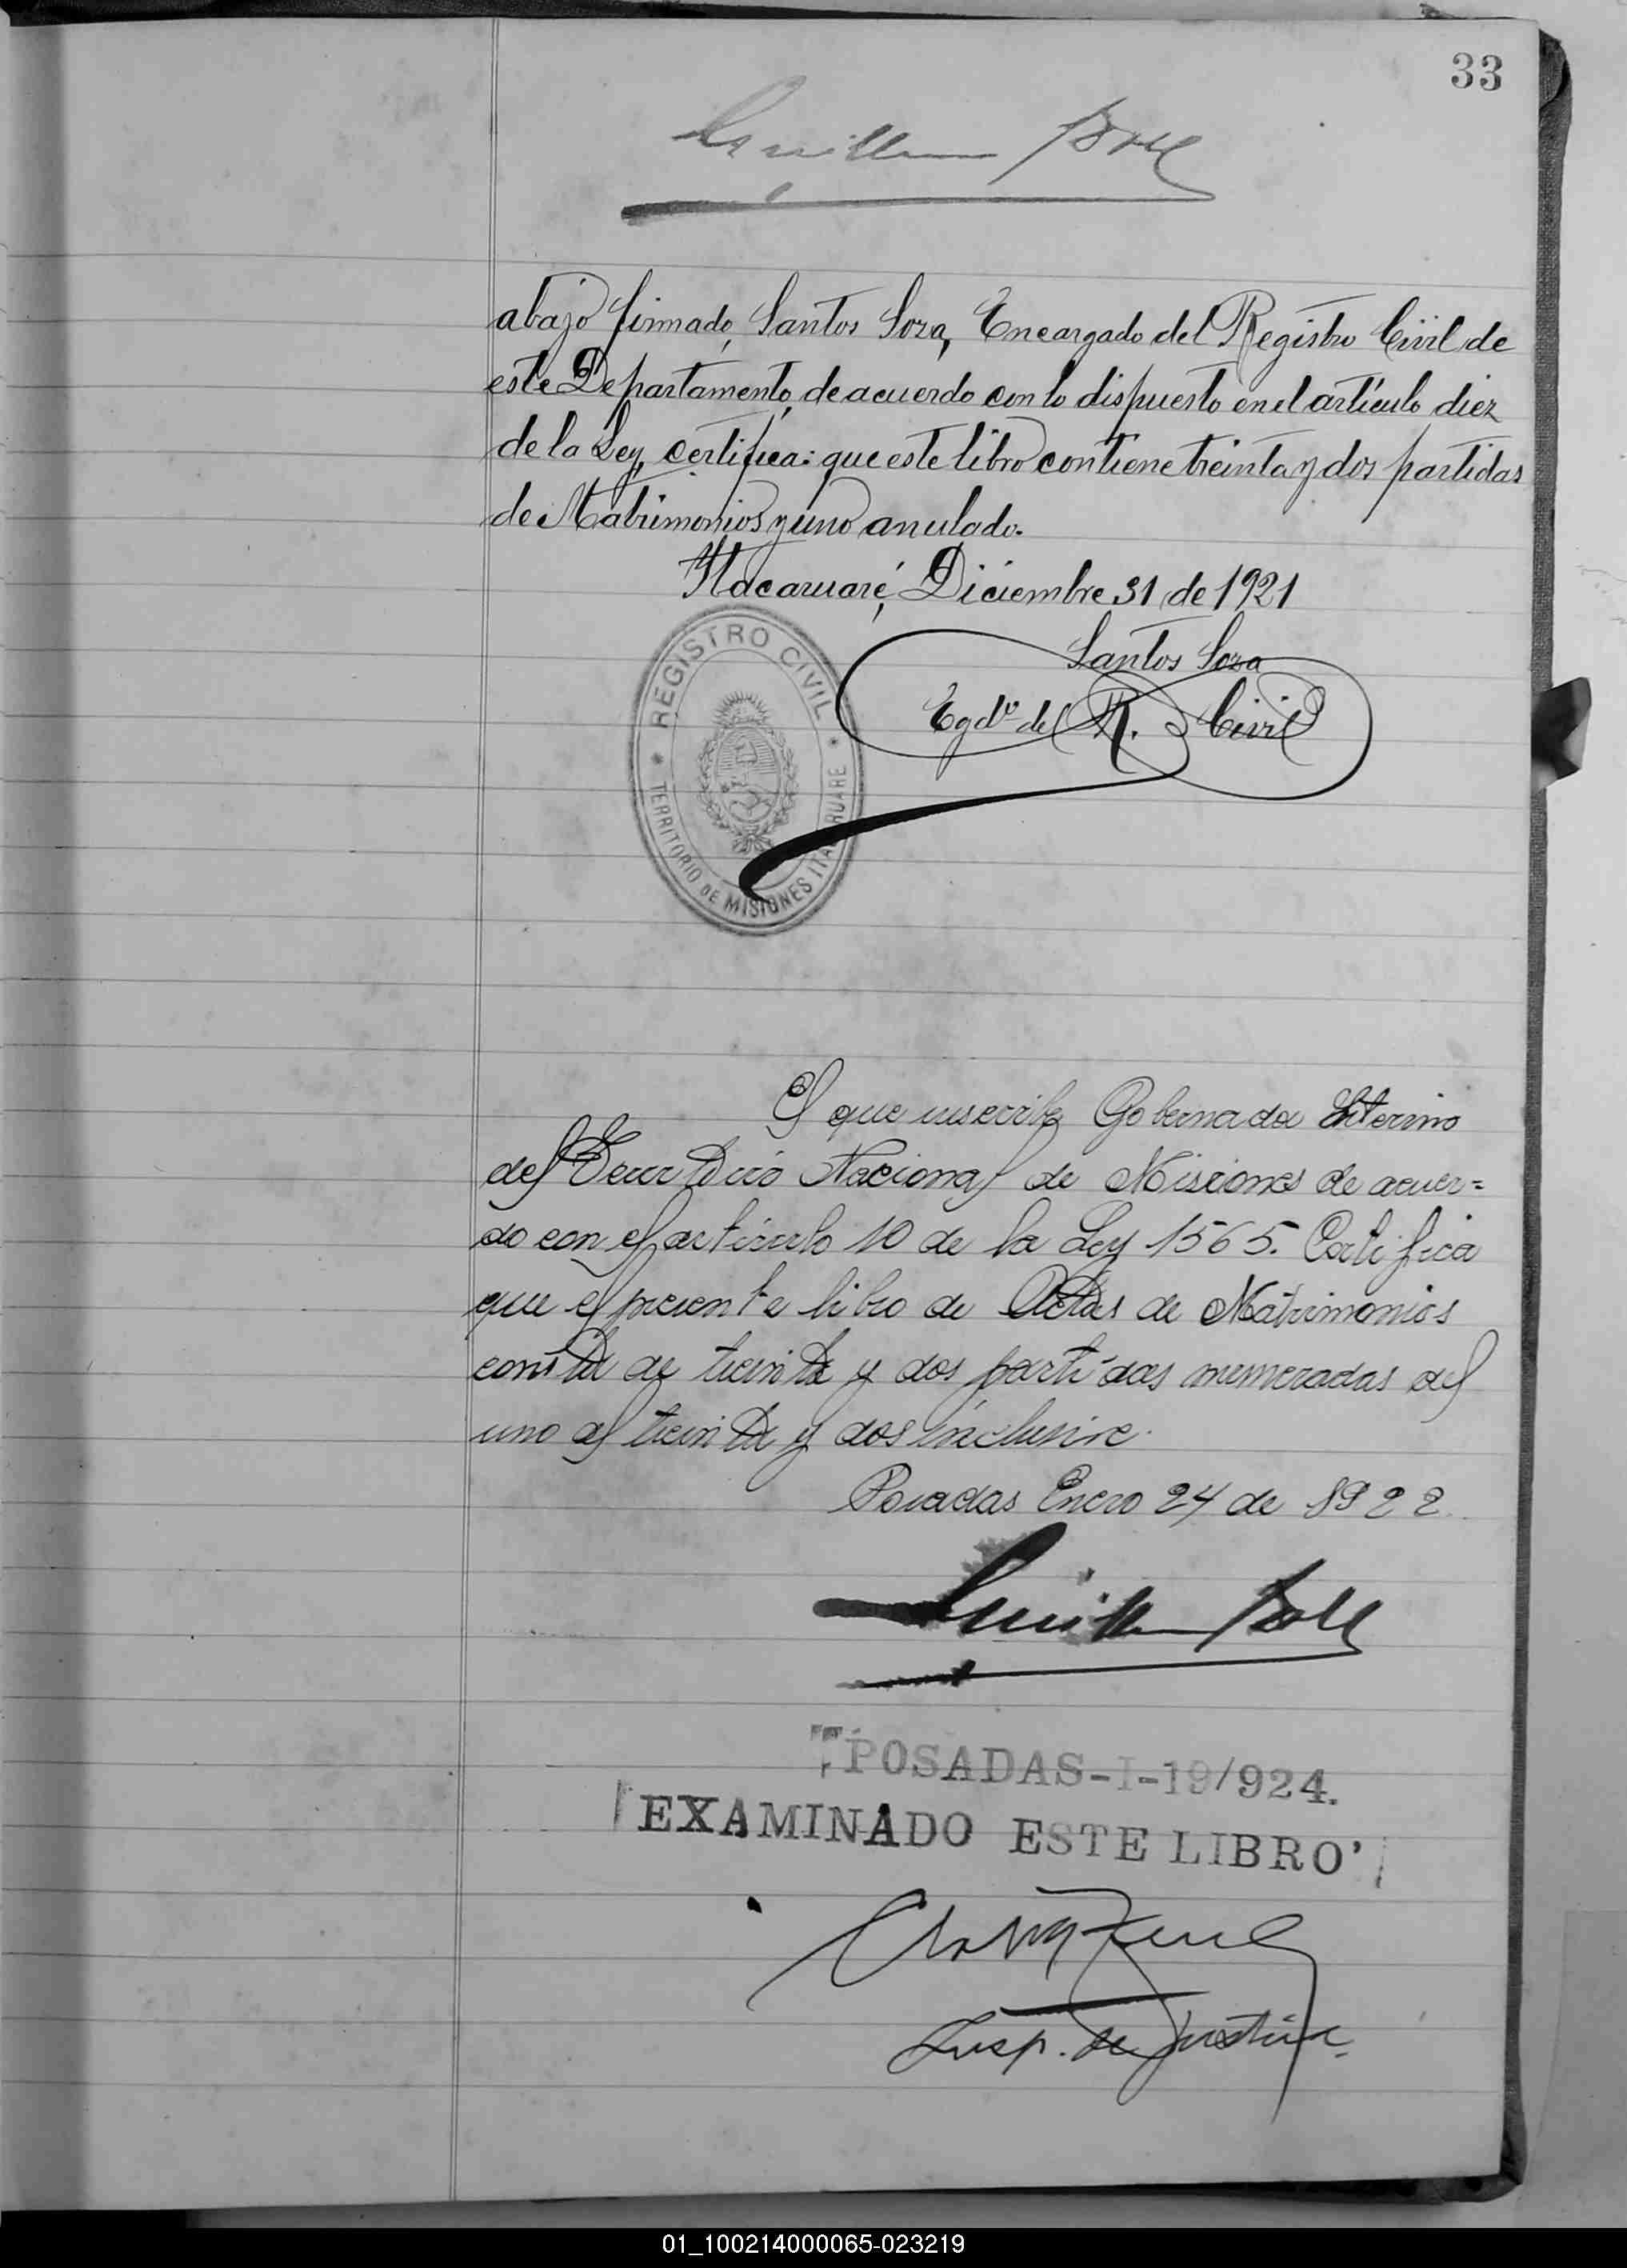 33
abajo firmado, Santos Soza, Encargado del Registro Civil de
este Departamento, de acuerdo con lo dispuesto en el artículo diez
de la Ley, certifica: que este libro contiene treinta y dos partidas
de Matrimonios y uno anulado.
Itacaruaré, Diciembre 31 de 1921
Santos Soza
Egdo del R. Civil
REGISTRO CIVIL
TERRITORIO DE MISIONES ITACARUARE
El que suscribe Gobernador Interino
del Territorio Nacional de Misiones de acuer=
do con el artículo 10 de la Ley 1565. Certifica
que el presente libro de Actas de Matrimonios
consta de treinta y dos partidas numeradas del
uno al treinta y dos inclusive.
Posadas Enero 24 de 1922
POSADAS-I-19/924.
EXAMINADO ESTE LIBRO
Insp. de Justicia
01_100214000065-023219